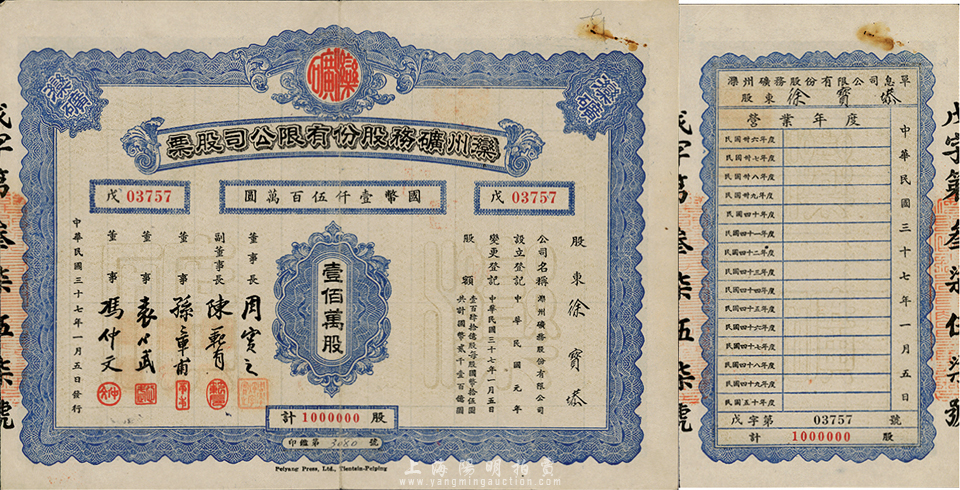 灤礦
灤州礦務股份有限公司股票
戊 03757
國幣壹仟伍百萬圓
戊 03757
股東 徐寶
公司名稱 灤州礦務股份有限公司
設立登記 中華民國元年
變更登記 中華民國三十七年一月五日
股額 壹百肆拾億股每股國幣拾伍圓
共計國幣貳千壹百億圓
壹佰萬股
董事長 周實之
副董事長 陳範有
董事 孫章甫
董事 袁武
董事 馮仲文
中華民國三十七年一月五日發行
計 1000000 股
印鑑第 3680 號
Peiyang Press, Ltd., Tientsin-Peiping
戊字第叁柒伍柒號
灤州礦務股份有限公司息單
股東 徐寶
營業年度
民國卅六年度
民國卅七年度
民國卅八年度
民國卅九年度
民國四十年度
民國四十一年度
民國四十二年度
民國四十三年度
民國四十四年度
民國四十五年度
民國四十六年度
民國四十七年度
民國四十八年度
民國四十九年度
民國五十年度
中華民國三十七年一月五日
戊字第 03757 號
計 1000000 股
戊字第叁柒伍柒號
上海陽明拍賣
www.yangmingauction.com